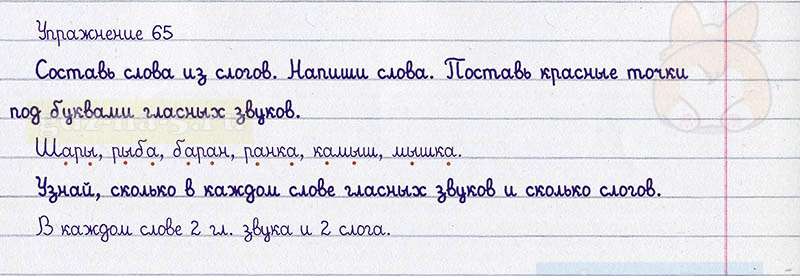 Упражнение 65
Составь слова из слогов. Напиши слова. Поставь красные точки
под буквами гласных звуков.
Шары, рыба, баран, ранка, камыш, мышка.
Узнай, сколько в каждом слове гласных звуков и сколько слогов.
В каждом слове 2 гл. звука и 2 слога.